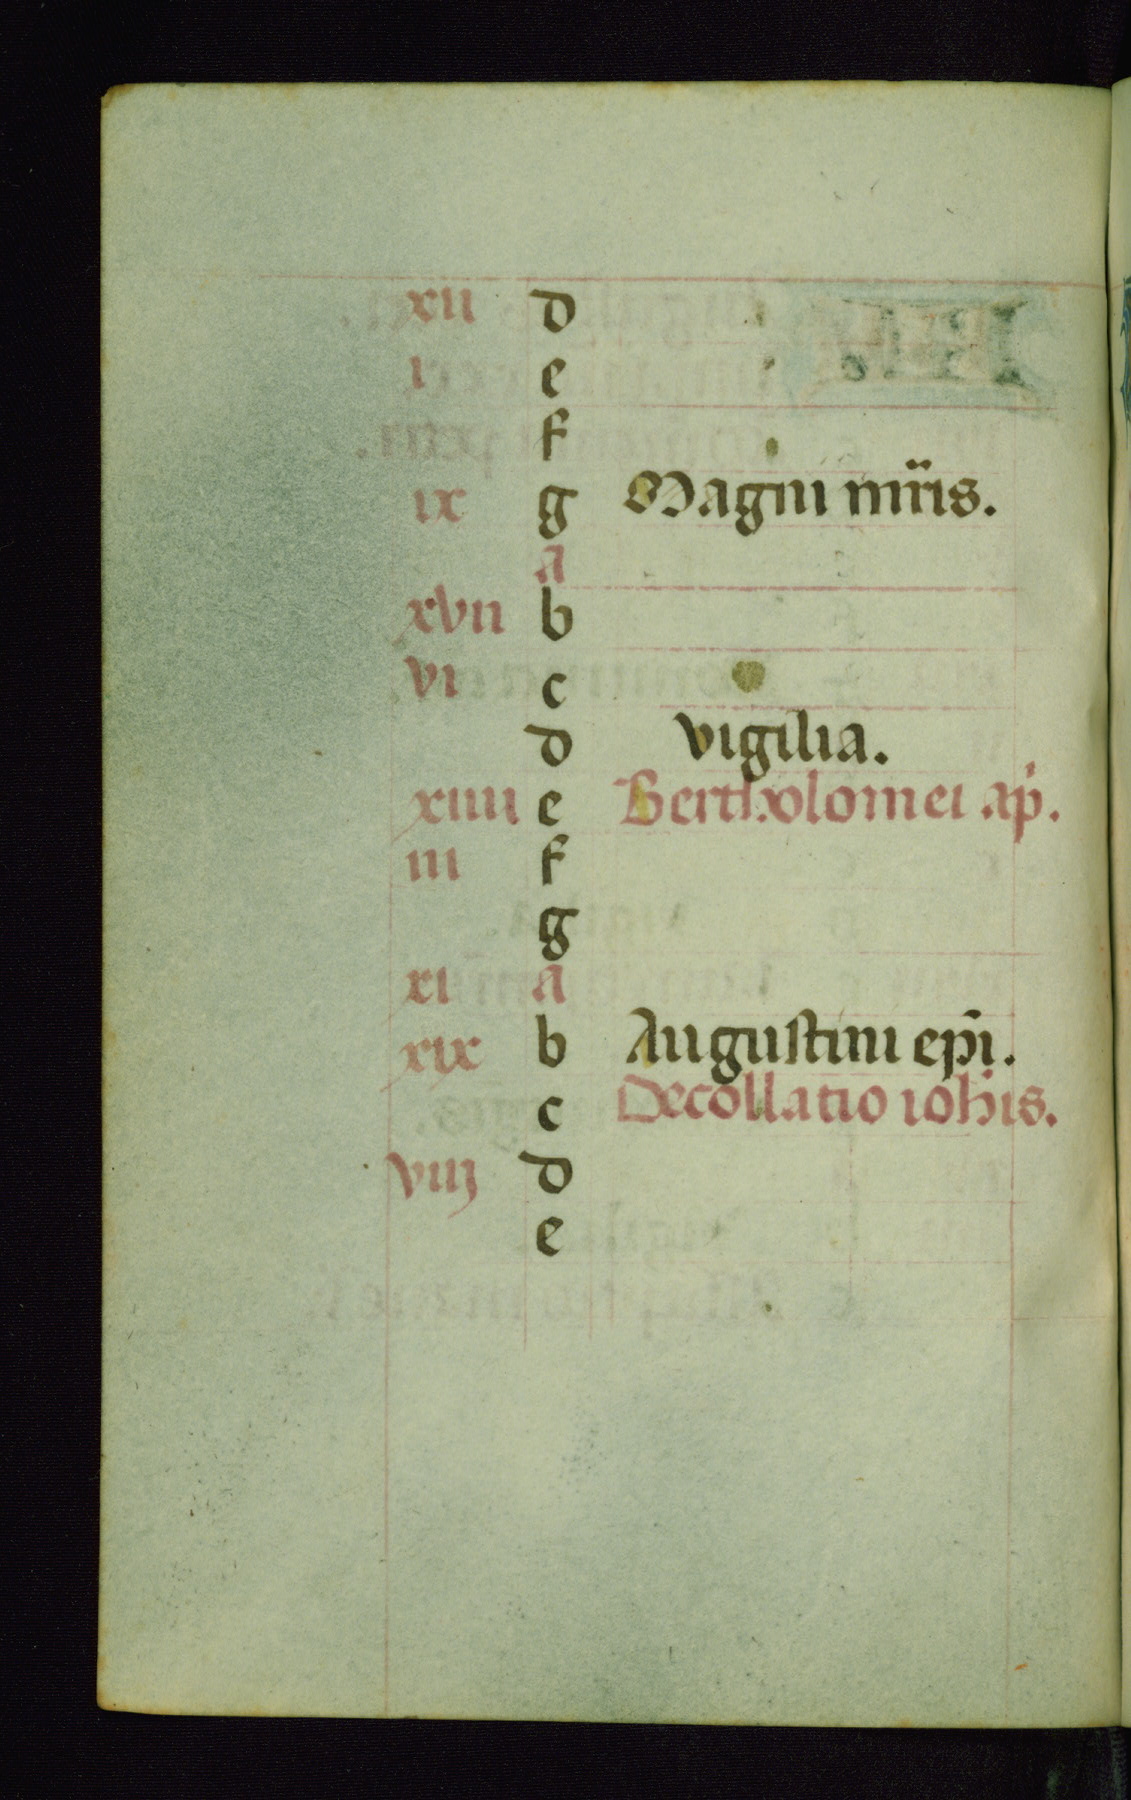 xii d
i e
f
ix g Magni mr̃is.
a
xvii b
vi c
d vigilia.
xiiii e Bertholomei ap̃.
iii f
g
xi a
xix b Augustini ep̃i.
c Decollatio ioh̃is.
viij d
e